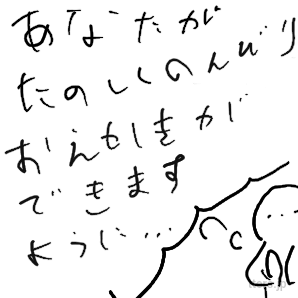 あなたが
たのしくのんびり
おえかきが
できます
ように…